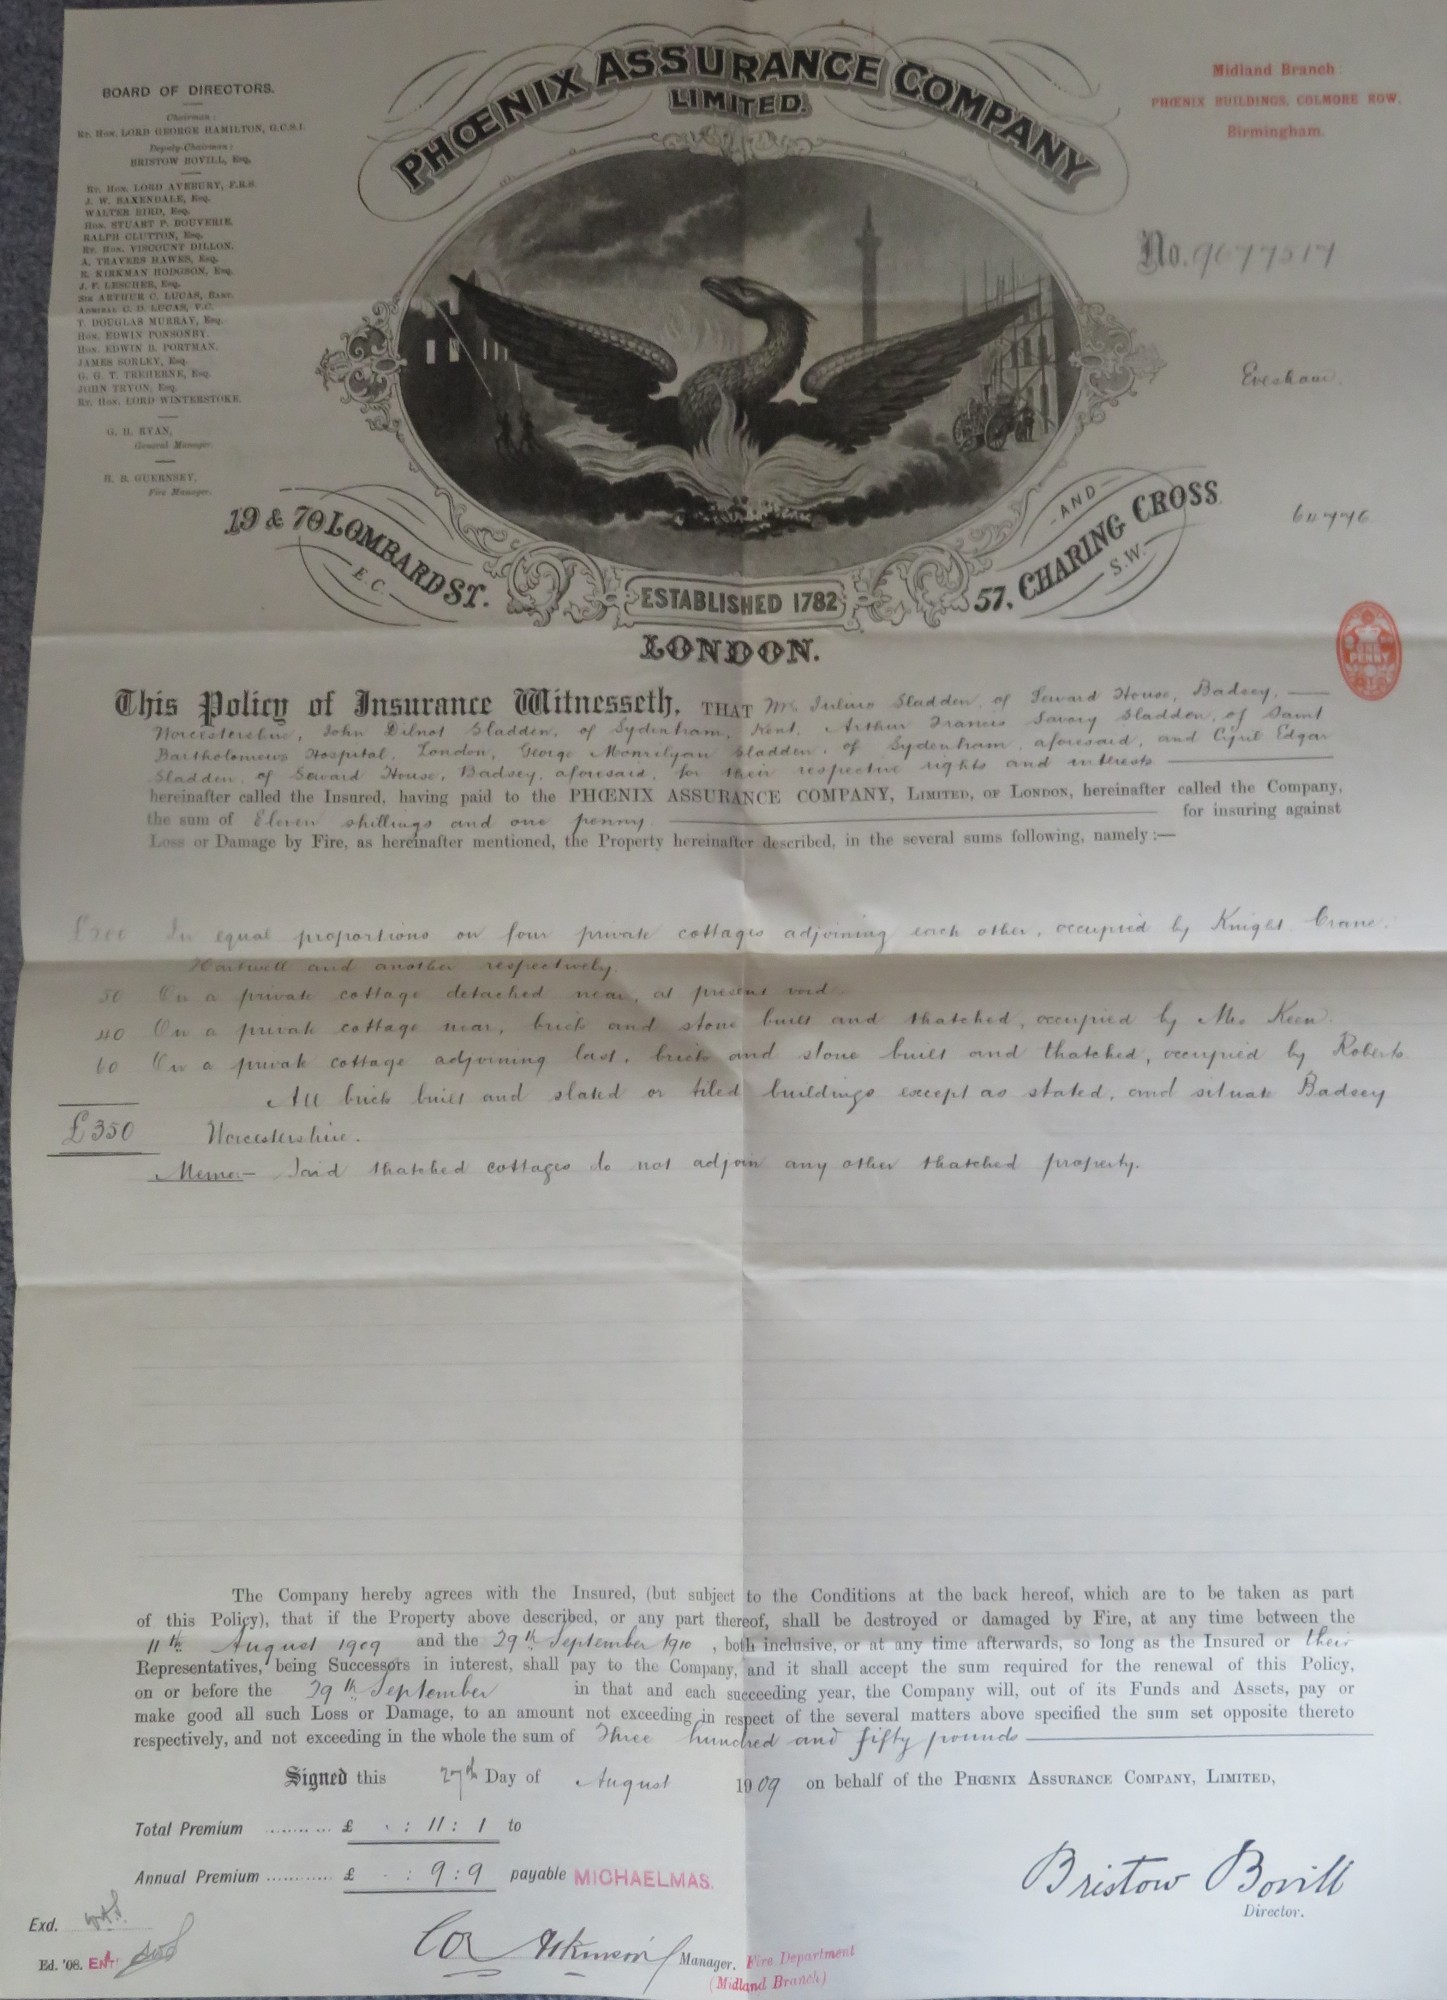 BOARD OF DIRECTORS.
Chairman:
RT. HON. LORD GEORGE HAMILTON, G.C.S.I.
Deputy-Chairman:
BRISTOW BOVILL, Esq.
RT. HON. LORD AVEBURY, F.R.S.
J. W. BAXENDALE, Esq.
WALTER BIRD, Esq.
HON. STUART P. BOUVERIE.
RALPH CLUTTON, Esq.
RT. HON. VISCOUNT DILLON.
A. TRAVERS HAWES, Esq.
R. KIRKMAN HODGSON, Esq.
J. F. LESCHER, Esq.
SIR ARTHUR C. LUCAS, BART.
ADMIRAL C. D. LUCAS, V.C.
T. DOUGLAS MURRAY, Esq.
HON. EDWIN PONSONBY.
HON. EDWIN B. PORTMAN.
JAMES SORLEY, Esq.
G. G. T. TREHERNE, Esq.
JOHN TRYON, Esq.
RT. HON. LORD WINTERSTOKE.
G. H. RYAN,
General Manager.
H. B. GUERNSEY,
Fire Manager.
PHŒNIX ASSURANCE COMPANY
LIMITED.
Midland Branch:
PHŒNIX BUILDINGS, COLMORE ROW,
Birmingham.
No. 9677517
Evesham.
19 & 70 LOMBARD ST.
E.C.
ESTABLISHED 1782
AND
57, CHARING CROSS
S.W.
LONDON.
ONE PENNY
This Policy of Insurance Witnesseth, THAT Mr Julius Sladden, of Seward House, Badsey,
Worcestershire, John Dilnot Sladden, of Sydenham, Kent, Arthur Francis Savory Sladden, of Saint
Bartholomews Hospital, London, George Sladden, of Sydenham, aforesaid, and Cyril Edgar
Sladden, of Seward House, Badsey, aforesaid, for their respective rights and interests
hereinafter called the Insured, having paid to the PHŒNIX ASSURANCE COMPANY, LIMITED, OF LONDON, hereinafter called the Company,
the sum of Eleven shillings and one penny. for insuring against
Loss or Damage by Fire, as hereinafter mentioned, the Property hereinafter described, in the several sums following, namely:—
£200 In equal proportions on four private cottages adjoining each other, occupied by Knight, Crane,
Hartwell and another respectively.
50 On a private cottage detached near, at present void.
40 On a private cottage near, brick and stone built and thatched, occupied by Mrs Keen.
60 On a private cottage adjoining last, brick and stone built and thatched, occupied by Roberts.
All brick built and slated or tiled buildings except as stated, and situate Badsey
£350 Worcestershire.
Memo:— Said thatched cottages do not adjoin any other thatched property.
The Company hereby agrees with the Insured, (but subject to the Conditions at the back hereof, which are to be taken as part
of this Policy), that if the Property above described, or any part thereof, shall be destroyed or damaged by Fire, at any time between the
11th August 1909 and the 29th September 1910, both inclusive, or at any time afterwards, so long as the Insured or their
Representatives, being Successors in interest, shall pay to the Company, and it shall accept the sum required for the renewal of this Policy,
on or before the 29th September in that and each succeeding year, the Company will, out of its Funds and Assets, pay or
make good all such Loss or Damage, to an amount not exceeding in respect of the several matters above specified the sum set opposite thereto
respectively, and not exceeding in the whole the sum of Three hundred and fifty pounds
Signed this 27th Day of August 1909 on behalf of the PHŒNIX ASSURANCE COMPANY, LIMITED,
Total Premium .......... £ - : 11 : 1 to
Annual Premium ............ £ - : 9 : 9 payable MICHAELMAS.
Bristow Bovill
Director.
Exd.
Ed. '08. ENT.
Atkinson Manager, Fire Department
(Midland Branch)